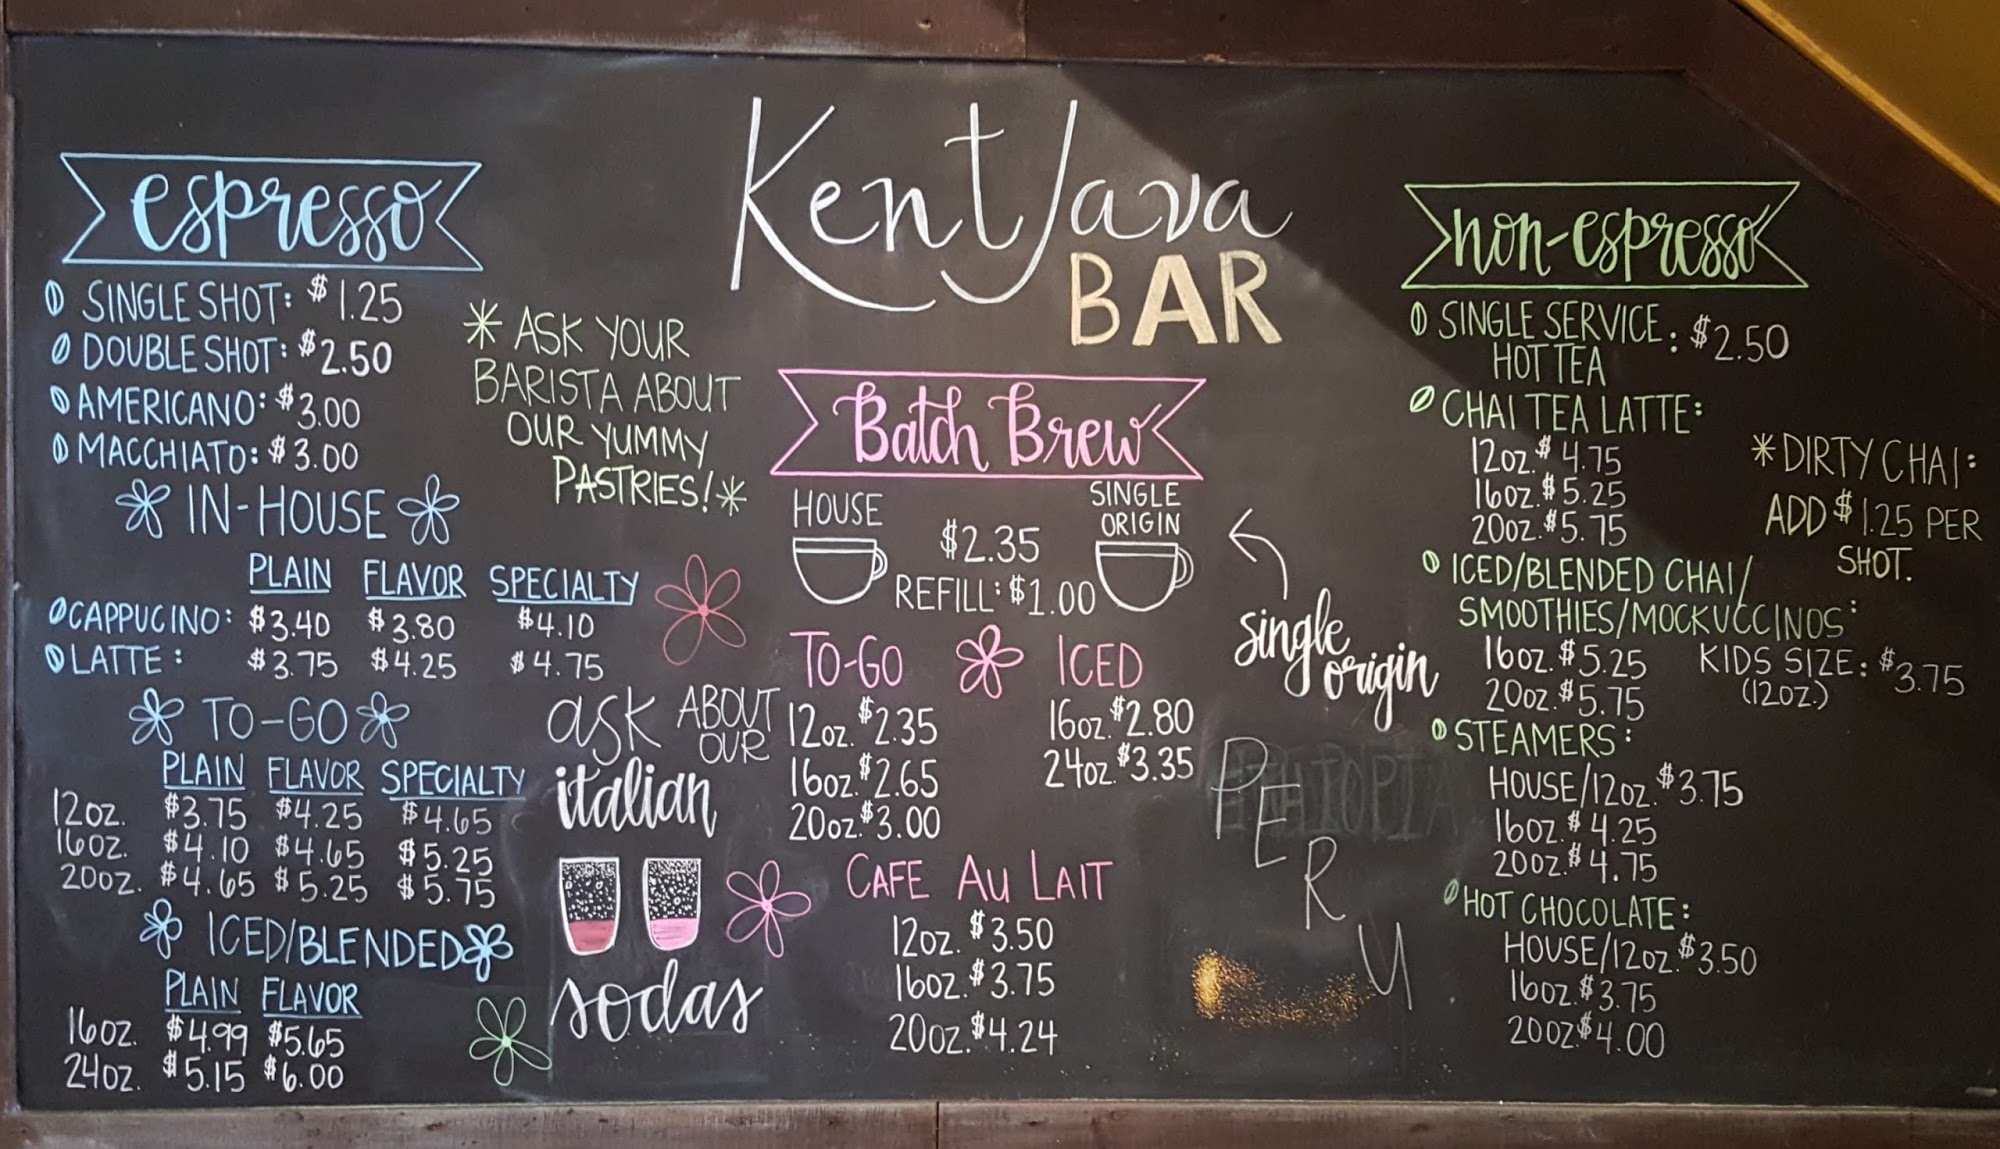 Kent Java
BAR
espresso
SINGLE SHOT: $1.25
DOUBLE SHOT: $2.50
AMERICANO: $3.00
MACCHIATO: $3.00
IN-HOUSE
PLAIN FLAVOR SPECIALTY
CAPPUCINO: $3.40 $3.80 $4.10
LATTE: $3.75 $4.25 $4.75
TO-GO
PLAIN FLAVOR SPECIALTY
12oz. $3.75 $4.25 $4.65
16oz. $4.10 $4.65 $5.25
20oz. $4.65 $5.25 $5.75
ICED/BLENDED
PLAIN FLAVOR
16oz. $4.99 $5.65
24oz. $5.15 $6.00
*ASK YOUR
BARISTA ABOUT
OUR YUMMY
PASTRIES!*
ask ABOUT
OUR
italian
sodas
Batch Brew
HOUSE
SINGLE
ORIGIN
$2.35
REFILL: $1.00
TO-GO
12oz. $2.35
16oz. $2.65
20oz. $3.00
ICED
16oz. $2.80
24oz. $3.35
CAFE AU LAIT
12oz. $3.50
16oz. $3.75
20oz. $4.24
single
origin
ETHIOPIA
PERU
non-espresso
SINGLE SERVICE: $2.50
HOT TEA
CHAI TEA LATTE:
12oz. $4.75
16oz. $5.25
20oz. $5.75
*DIRTY CHAI:
ADD $1.25 PER
SHOT.
ICED/BLENDED CHAI/
SMOOTHIES/MOCKUCCINOS:
16oz. $5.25
20oz. $5.75
KIDS SIZE: $3.75
(12oz.)
STEAMERS:
HOUSE/12oz. $3.75
16oz. $4.25
20oz. $4.75
HOT CHOCOLATE:
HOUSE/12oz. $3.50
16oz. $3.75
20oz. $4.00